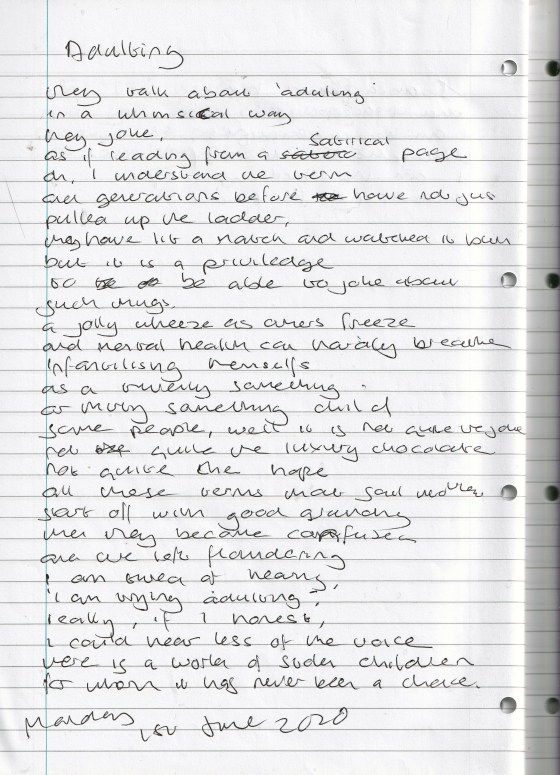 Adulting
they talk about 'adulting'
in a whimsical way
they joke,
as if reading from a satirical page
oh, I understand the term
our generations before have not just
pulled up the ladder,
they have lit a match and watched it burn
but it is a priviledge
to be able to joke about
such things.
a jolly wheeze as others freeze
and mental health can hardly breathe
infantilising themselfs
as a twenty something
or thirty something child
some people, well it is not quite the joke
not quite the luxury chocolate
not quite the hope
all these terms that
start off with good grounding
then they become confused
and are left floundering
I am tired of hearing,
'I am trying adulting',
really, if I honest,
I could hear less of the voice
there is a world of children
for whom it has never been a choice.
Monday 1st June 2020